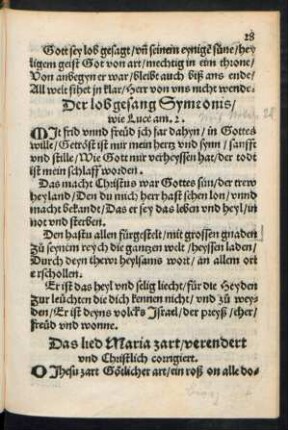 28
Gott sey lob gesagt/ vñ seinem eynigẽ süne/ hey
ligem geist Got von art/ mechtig in ein throne/
Von anbegyn er war/ bleibt auch biß ans ende/
All welt sihet jn klar/ Herr von vns nicht wende.
Der lobgesang Symeonis/
wie Luce am .2.
MIt frid vnnd freüd jch far dahyn/ in Gottes
wille/ Getröst ist mir mein hertz vnd synn/ sanfft
vnd stille/ Wie Gott mir verheyssen hat/ der todt
ist mein schlaff worden.
Das macht Christus war Gottes sün/ der trew
heyland/ Den du mich herr hast sehen lon/ vnnd
macht bekandt/ Das er sey das leben vnd heyl/ in
not vnd sterben.
Den hastu allen fürgestelt/ mit grossen gnaden
Zü seynem reych die gantzen welt/ heyssen laden/
Durch deyn thewr heylsams wort/ an allem ort
erschollen.
Er ist das heyl vnd selig liecht/ für die Heyden
Zur leüchten die dich kennen nicht/ vnd zü wey-
den/ Er ist deyns volcks Israel/ der preyß/ eher/
freüd vnd wonne.
Das lied Maria zart/ verendert
vnd Christlich corrigiert.
O Jhesu zart Götlicher art/ ein roß on alle do-